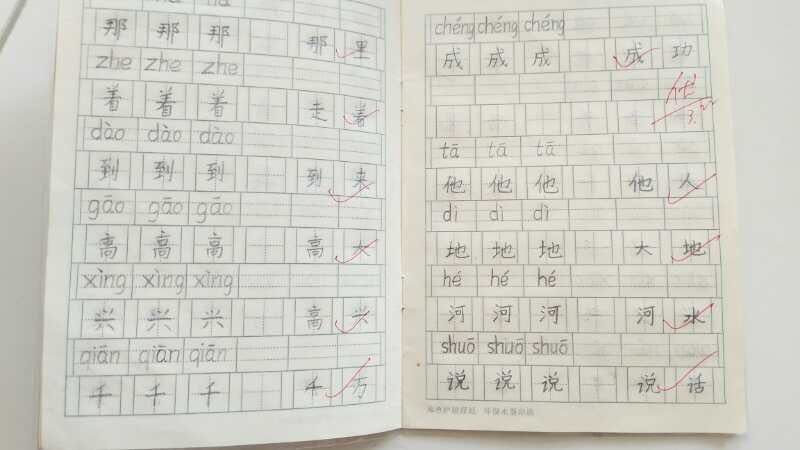 那 那 那 那 里
zhe zhe zhe
着 着 着 走 着
dào dào dào
到 到 到 到 来
gāo gāo gāo
高 高 高 高 大
xìng xìng xìng
兴 兴 兴 高 兴
qiān qiān qiān
千 千 千 千 万
chéng chéng chéng
成 成 成 成 功
3.22
tā tā tā
他 他 他 他 人
dì dì dì
地 地 地 大 地
hé hé hé
河 河 河 河 水
shuō shuō shuō
说 说 说 说 话